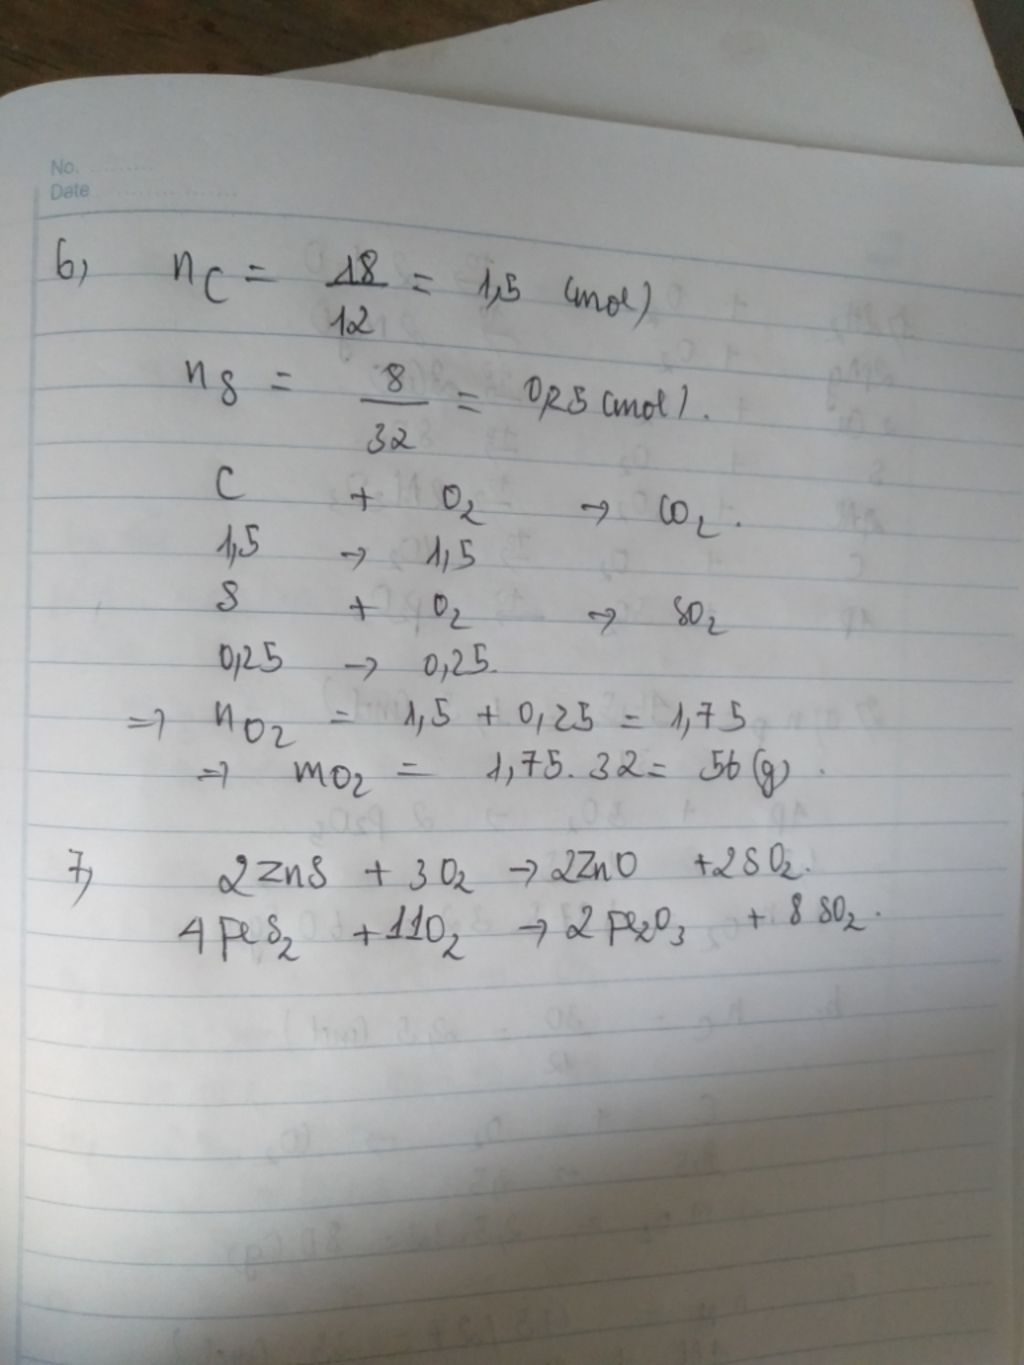 No.
Date
6, nC = 18/12 = 1,5 (mol)
nS = 8/32 = 0,25 (mol).
C + O2 → CO2.
1,5 → 1,5
S + O2 → SO2
0,25 → 0,25.
=> nO2 = 1,5 + 0,25 = 1,75
=> mO2 = 1,75.32 = 56 (g).
7, 2ZnS + 3O2 → 2ZnO + 2SO2.
4FeS2 + 11O2 → 2Fe2O3 + 8SO2.